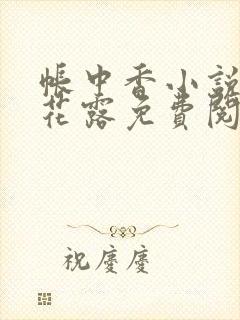 帳中香小説
花露免費閱
祝慶慶